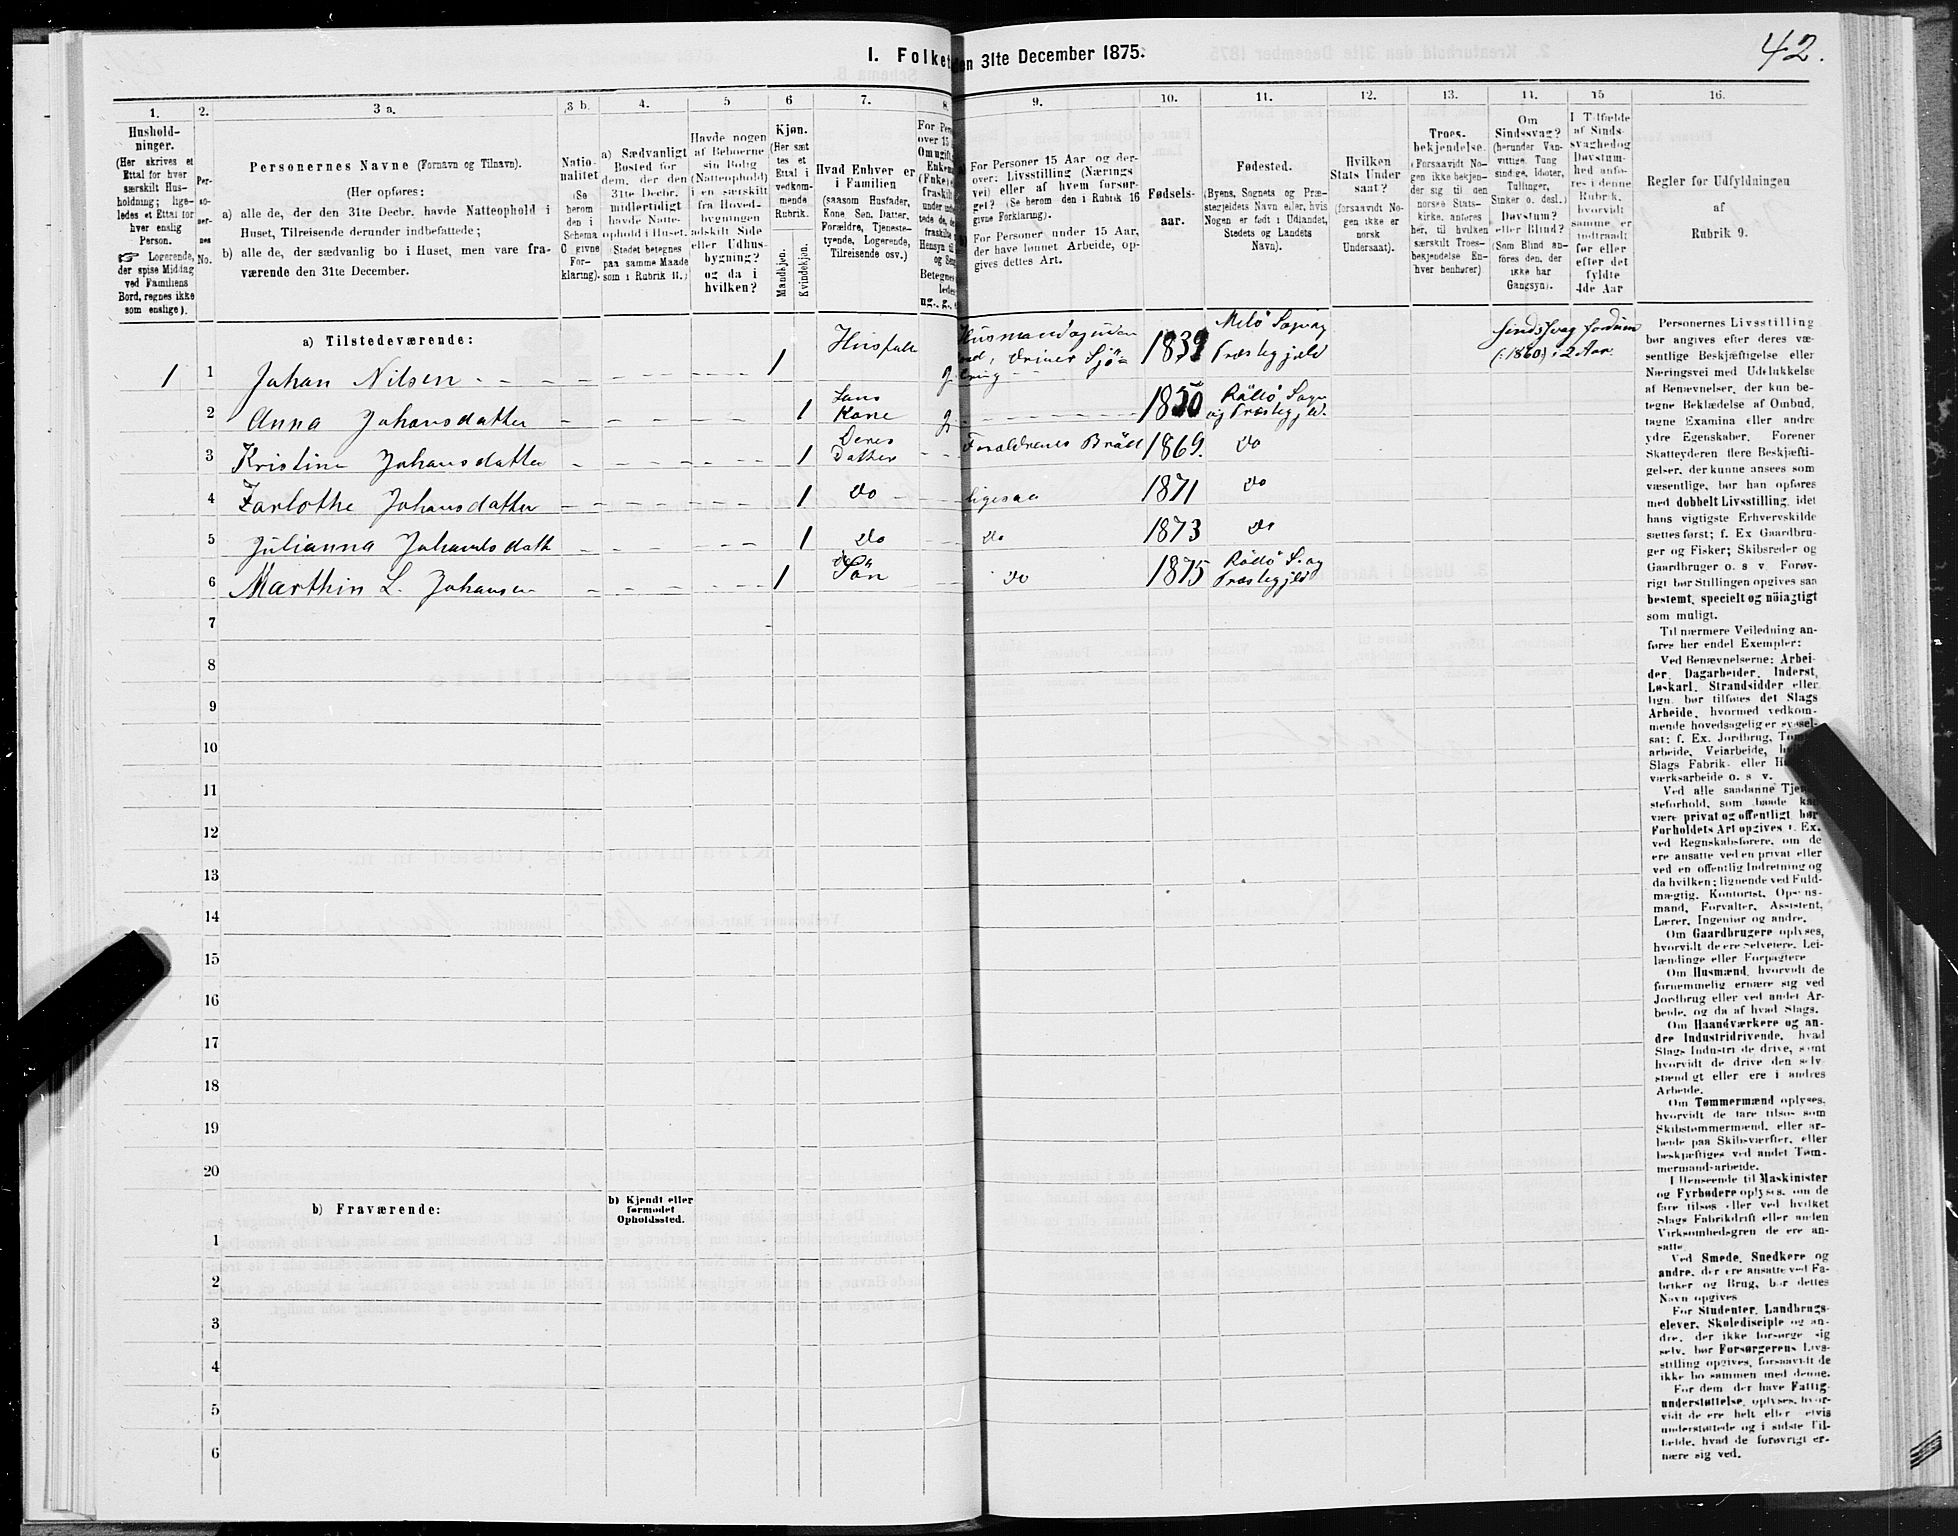 42.
I. Folket
den 31te December 1875.
1. 2. 3 a. 3 b. 4. 5 6 7. 8. 9. 10. 11. 12. 13. 14. 15 16.
Hushold-
ninger.
(Her skrives et
Ettal for hver
særskilt Hus-
holdning; lige-
ledes et Ettal for
hver enslig
Person.
☞ Logerende,
der spise Middag
ved Familiens
Bord, regnes ikke
som enslige).
Per-
so-
ner-
nes
No.
Personernes Navne (Fornavn og Tilnavn).
(Her opføres:
a) alle de, der den 31te Decbr. havde Natteophold i
Huset, Tilreisende derunder indbefattede;
b) alle de, der sædvanlig bo i Huset, men vare fra-
værende den 31te December.
Natio-
nalitet
(Se
herom
den i
Schema
C givne
For-
klaring).
a) Sædvanligt
Bosted for
dem, der den
31te Decbr.
midlertidigt
havde Natte-
ophold i Huset.
(Stedet betegnes
paa samme Maade
som i Rubrik 11.)
Havde nogen
af Beboerne
sin Bolig
(Natteophold)
i en særskilt
fra Hoved-
bygningen
adskilt Side
eller Udhus-
bygning?
og da i
hvilken?
Kjøn.
(Her sæt
tes et
Ettal i
vedkom-
mende
Rubrik.
Mandkjøn.
Kvindekjøn.
Hvad Enhver er
i Familien
(saasom Husfader,
Kone Søn, Datter,
Forældre, Tjeneste-
tyende, Logerende,
Tilreisende osv.)
For Personer 15 Aar og der-
over: Livsstilling (Nærings
vei) eller af hvem forsør-
get? (Se herom den i Rubrik 16
givne Forklaring).
For Personer under 15 Aar,
der have lønnet Arbeide, op-
gives dettes Art.
Fødsels-
aar.
Fødested.
(Byens, Sognets og Præ-
stegjeldets Navn eller, hvis
Nogen er født i Udlandet,
Stedets og Landets
Navn).
Hvilken
Stats Under
saat?
(forsaavidt No-
gen ikke er
norsk
Undersaat).
Troes-
bekjendelse.
(Forsaavidt No-
gen ikke bekjen-
der sig til den
norske Stats-
kirke, anføres
her, til hvilken
særskilt Troes-
bekjendelse En-
hver henhører)
Om
Sindssvag?
(herunder Van-
vittige, Tung
sindige, Idioter,
Tullinger,
Sinker o. desl.)
Døvstum?
eller Blind?
(Som Blind an-
føres den, der
ikke har
Gangsyn).
I Tilfælde
af Sinds-
svaghedog
Døvstum-
hed anfø-
res i denne
Rubrik,
hvorvidt
samme er
indtraadt
før eller
efter det
fyldte
4de Aar
Regler før Udfyldningen
af
Rubrik 9.
a) Tilstedeværende:
1 1 Johan Nilsen 1 1839 Melö Sogn og Præstegjeld
2 Anna Johansdatter 1 Hans Kone g 1850 Rödö Sogn og Præstegjeld.
3 Kristine Johansdatter 1 Deres Datter Forældrenes Bröd 1869. Do
4 Johansdatter 1 Do ligesaa 1871 Do
5 Julianna 1 Do Do 1873 Do
6 Marthin L. Johansen 1 Sön Do 1875 Rödö S. og Præstegjeld
7
8
9
10
11
12
13
14
15
16
17
18
19
20
b) Fraværende:
b) Kjendt eller
formodet
Opholdssted.
1
2
3
4
5
6
Personernes Livsstilling
bør angives efter deres væ-
sentlige Beskjæftigelse eller
Næringsvei med Udelukkelse
af Benævnelser, der kun be-
tegne Beklædelse af Ombud,
tagne Examina eller andre
ydre Egenskaber. Forener
Skatteyderen flere Beskjæfti-
gelser, der kunne ansees som
væsentlige, bør han opføres
med dobbelt Livsstilling, idet
hans vigtigste Erhvervskilde
sættes først; f. Ex Gaardbru-
ger og Fisker; Skibsreder og
Gaardbruger o. s v. Forøv-
rigt bør Stillingen opgives saa
bestemt, specielt og nöiagtigt
som muligt.
Til nærmere Veiledning an-
føres her endel Exempler:
Ved Benævnelserne: Arbei-
der, Dagarbeider, Inderst,
Løskarl, Strandsidder eller
lign. bør tilføres det Slags
Arbeide, hvormed vedkom-
mende hovedsagelig er syssel-
sat; f. Ex. Jordbrug,
arbeide, Veiarbeide,
Slags Fabrik- eller
værksarbeide o. s v.
Ved alle saadanne
steforhold, som baade
være privat og offentligt, bør
Forholdets Art opgives f. Ex.
ved Regnskabsførere, om de
ere ansatte ved en privat eller
ved en offentlig Indretning og
da hvilken; lignende ved Fuld-
mægtig, Kontorist, Opsyns-
mand, Forvalter, Assistent,
Lærer, Ingeniør og andre.
Om Gaardbrugere oplyses,
hvorvidt de ere selveiere, Lei-
lændinge eller Forpagtere
Om Husmænd, hvorvidt de
fornemmelig ernære sig ved
Jordbrug eller ved andet Ar-
beide, og da af hvad Slags.
Om Haandværkere og an-
dre Industridrivende, hvad
Slags Industri de drive, samt
hvorvidt de drive den selv-
stændigt eller ere i andres
Arbeide.
Om Tømmermænd oplyses,
hvorvidt de fare tilsøs som
Skibstømmermænd, eller ar-
beide paa Skibsværfter, eller
beskjæftiges ved andet Tøm-
mermand-arbeide.
I Henseende til Maskinister
og Fyrbødere oplyses, om de
fare tilsøs eller ved hvilket
Slags Fabrikdrift eller anden
Virksomhedsgren de ere an-
satte
Ved Smede, Snedkere og
andre, der ere ansatte ved Fa-
briker og Brug, bør dettes
Navn opgives
For Studenter, Landbrugs-
elever, Skoledisciple og an-
dre, der ikke forsørge sig
selv, bør Forsørgerens Livs-
stilling opgives, forsaavidt de
ikke bo sammen med denne.
For dem, der have Fattig-
understøttelse, oplyses, hvor-
vidt de ere helt eller
understøttede og i sidste Til-
fælde, hvad de forøvrigt er-
nære sig ved.